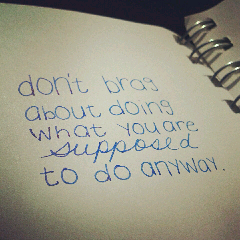 don't brag
about doing
what you are
supposed
to do anyway.